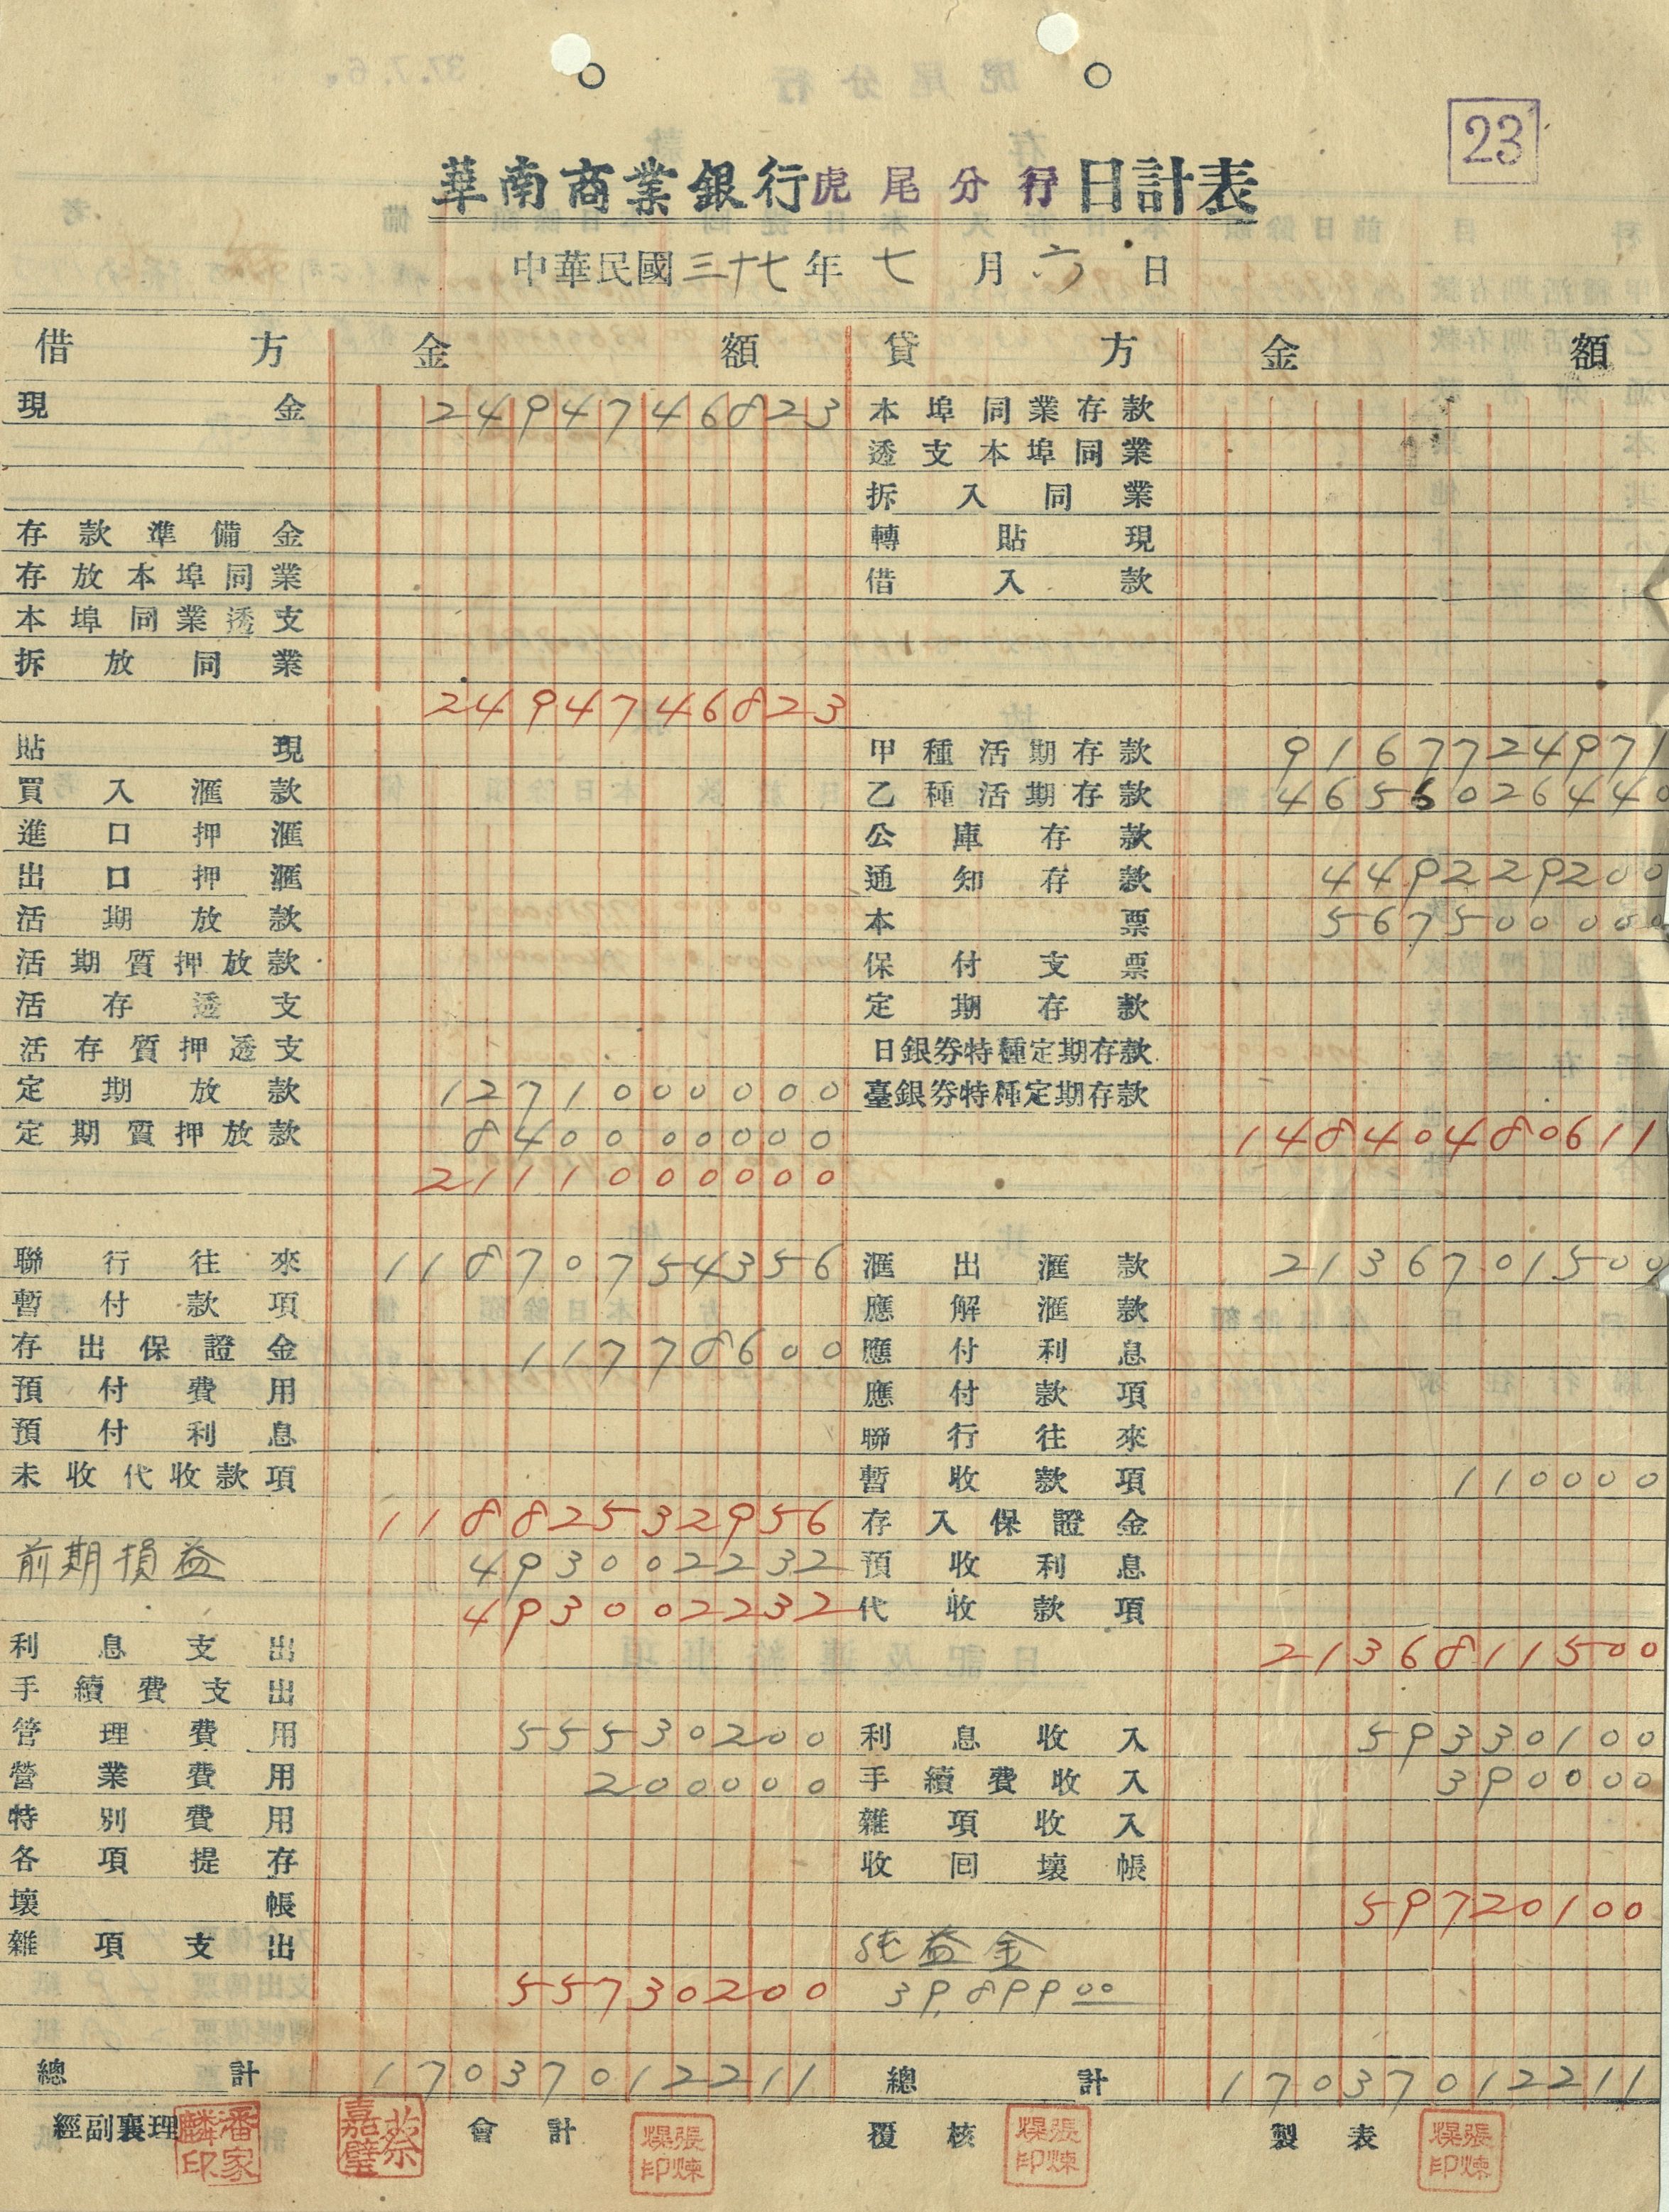 23
華南商業銀行虎尾分行日計表
中華民國三十七年七月六日
借方 金額 貸方 金額
現金 2494746823 本埠同業存款
透支本埠同業
拆入同業
存款準備金 轉貼現
存放本埠同業 借入款
本埠同業透支
拆放同業
2494746823
貼現 甲種活期存款 9167724971
買入滙款 乙種活期存款 4656026440
進口押滙 公庫存款
出口押滙 通知存款 449229200
活期放款 本票 567500000
活期質押放款 保付支票
活存透支 定期存款
活存質押透支 日銀券特種定期存款
定期放款 1271000000 臺銀券特種定期存款
定期質押放款 840000000 14840480611
2111000000
聯行往來 11870754356 滙出滙款 2136701500
暫付款項 應解滙款
存出保證金 11778600 應付利息
預付費用 應付款項
預付利息 聯行往來
未收代收款項 暫收款項 110000
11882532956 存入保證金
前期損益 493002232 預收利息
493002232 代收款項
利息支出 2136811500
手續費支出
管理費用 55530200 利息收入 59330100
營業費用 200000 手續費收入 390000
特別費用 雜項收入
各項提存 收回壞帳
壞帳 59720100
雜項支出 純益金
55730200 39,89900
總計 17037012211 總計 17037012211
經副襄理 潘家麟印 蔡嘉璧 會計 張煉爆印 覆核 張煉爆印 製表 張煉爆印